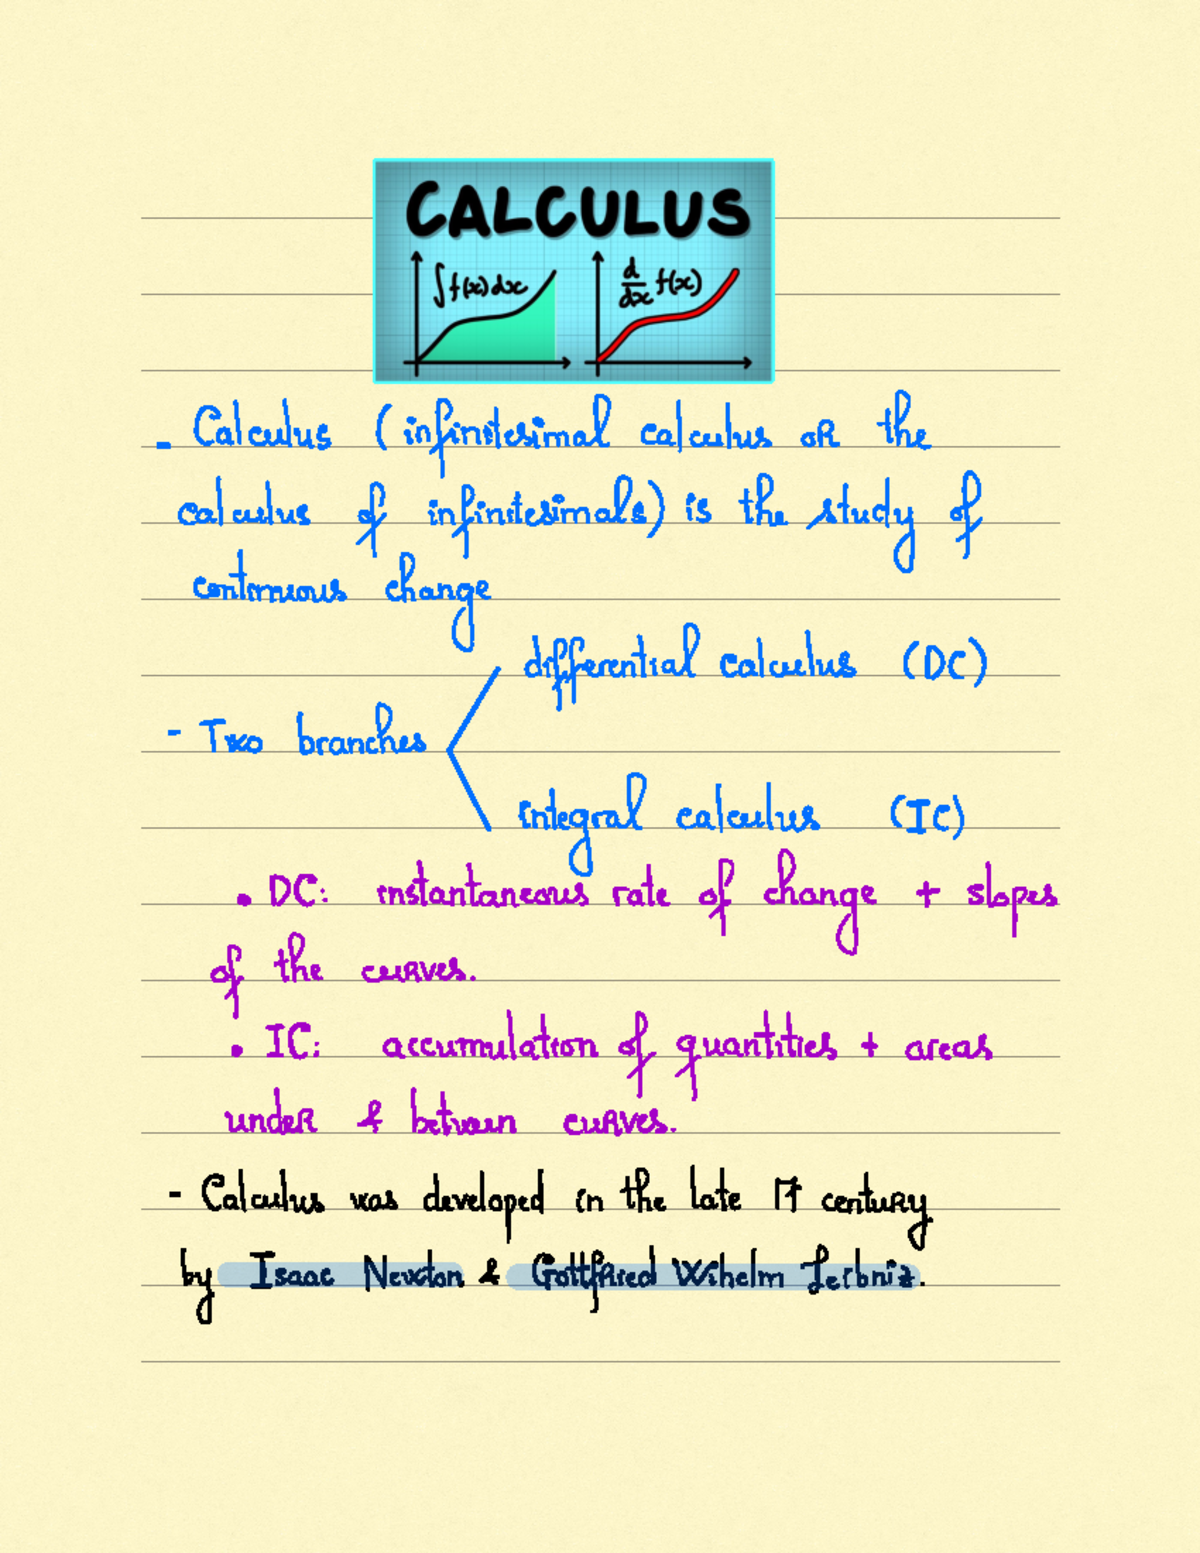 CALCULUS
∫f(x)dx d/dx f(x)
- Calculus (infinitesimal calculus or the
calculus of infinitesimals) is the study of
continuous change
differential calculus (DC)
- Two branches
integral calculus (IC)
• DC: instantaneous rate of change + slopes
of the curves.
• IC: accumulation of quantities + areas
under & between curves.
- Calculus was developed in the late 17 century
by Isaac Newton & Gottfried Wihelm Leibniz.